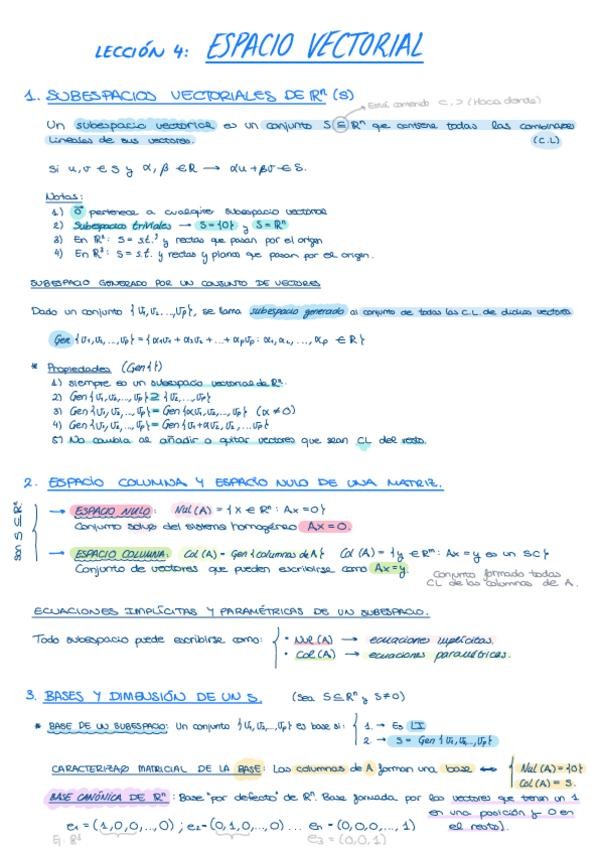 LECCIÓN 4: ESPACIO VECTORIAL
1. SUBESPACIOS VECTORIALES DE ℝⁿ (S)
Está comendo C.> (Hacia donde)
Un subespacio vectorial es un conjunto S ⊆ ℝⁿ que contiene todas las combinaciones
lineales de sus vectores. (C.L)
Si u, v ∈ S y α, β ∈ ℝ → αu + βv ∈ S.
Notas:
1) 0⃗ pertenece a cualquier subespacio vectorial
2) Subespacios triviales → S = {0} y S = ℝⁿ
3) En ℝ²: S = s.t.³ y rectas que pasan por el origen
4) En ℝ³: S = s.t. y rectas y planos que pasan por el origen.
SUBESPACIO GENERADO POR UN CONJUNTO DE VECTORES
Dado un conjunto {v₁, v₂, ..., vp}, se llama subespacio generado al conjunto de todas las C.L. de dichos vectores
Gen {v₁, v₂, ..., vp} = {α₁v₁ + α₂v₂ + ... + αpvp : α₁, α₂, ..., αp ∈ ℝ}
* Propiedades (Gen{})
1) siempre es un subespacio vectorial de ℝⁿ.
2) Gen {v₁, v₂, ..., vp} ⊇ {v₁, ..., vp}
3) Gen {v₁, v₂, ..., vp} = Gen {αv₁, v₂, ..., vp} (α ≠ 0)
4) Gen {v₁, v₂, ..., vp} = Gen {v₁ + αv₂, v₂, ... vp}
5) No cambia al añadir o quitar vectores que sean CL del resto.
2. ESPACIO COLUMNA Y ESPACIO NULO DE UNA MATRIZ.
son S ⊆ ℝⁿ
→ ESPACIO NULO: Nul (A) = {x ∈ ℝⁿ : Ax = 0}
Conjunto soluc del sistema homogéneo Ax = 0.
→ ESPACIO COLUMNA: Col (A) = Gen {columnas de A} Col (A) = {y ∈ ℝᵐ : Ax = y es un SC}
Conjunto de vectores que pueden escribirse como Ax = y.
Conjunto formado todas
CL de las columnas de A.
ECUACIONES IMPLÍCITAS Y PARAMÉTRICAS DE UN SUBESPACIO.
Todo subespacio puede escribirse como:
• Nul (A) → ecuaciones implícitas.
• Col (A) → ecuaciones paramétricas.
3. BASES Y DIMENSIÓN DE UN S. (Sea S ⊆ ℝⁿ y S ≠ 0)
* BASE DE UN SUBESPACIO: Un conjunto {v₁, v₂, ..., vp} es base si:
1. → Es LI
2. → S = Gen {v₁, v₂, ..., vp}
CARACTERIZAR MATRICIAL DE LA BASE: Las columnas de A forman una base ↔
Nul (A) = {0}
Col (A) = S.
BASE CANÓNICA DE ℝⁿ: Base "por defecto" de ℝⁿ. Base formada por los vectores que tienen un 1
en una posición y 0 en
el resto).
e₁ = (1, 0, 0, ..., 0) ; e₂ = (0, 1, 0, ..., 0) ... en = (0, 0, 0, ..., 1)
Ej: ℝ³ e₃ = (0, 0, 1)